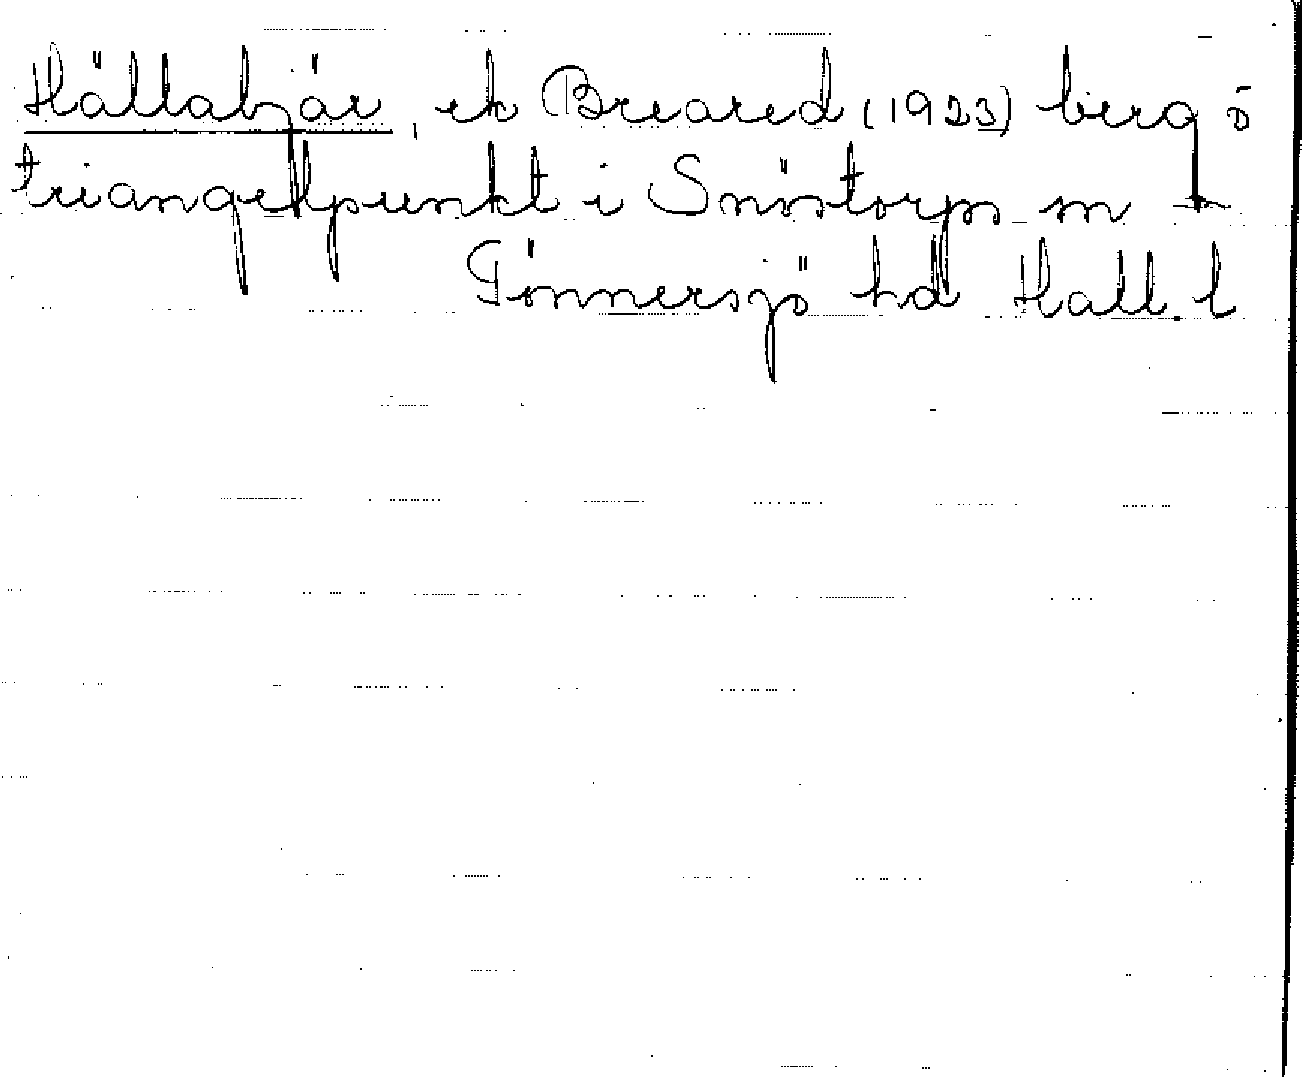 Hällabjär, ek Breared (1923) berg ö
triangelpunkt i Snöstorps sn
Tönnersjö hd Hall. l